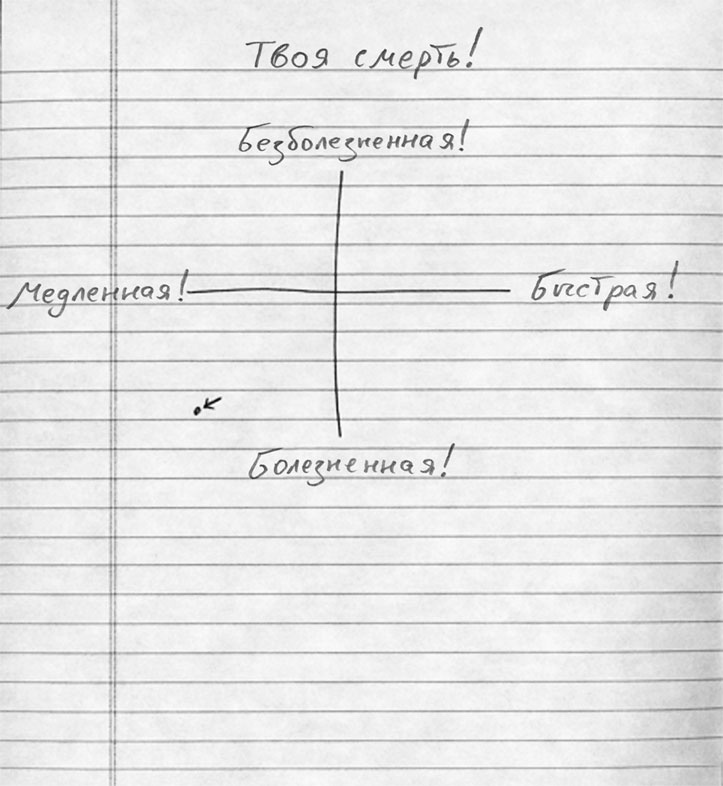 Твоя смерть!
Безболезненная!
Медленная!
Быстрая!
Болезненная!